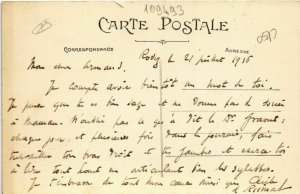 109493
CARTE POSTALE
CORRESPONDANCE
ADRESSE
le 21 juillet 1916
Mon cher Armand,
Je compte avoir bientôt un mot de toi.
Je pense que tu es bien sage et ne donnes pas de souci
à maman. N'oublie pas ce qu'a dit le Dr.
chaque jour et plusieurs fois dans la journée, fais
travailler ton bras droit et ta jambe et
à lire tout haut en articulant bien les syllabes.
Je t'embrasse de tout mon cœur ainsi que